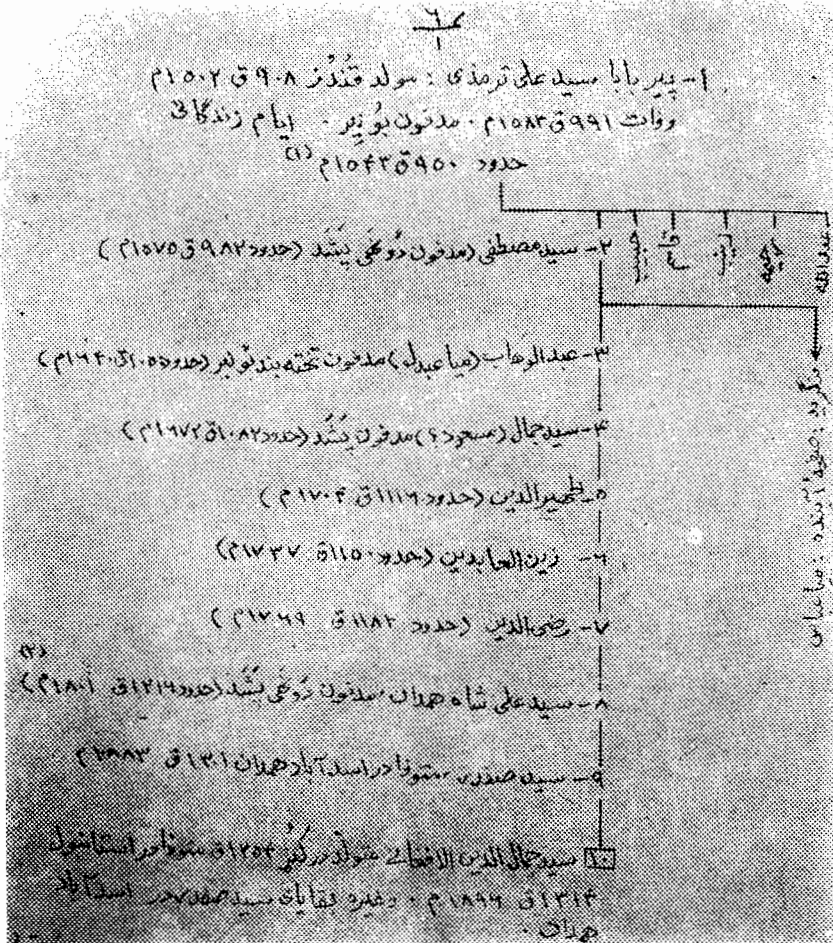 ۱- پیر بابا سید علی ترمذی : مولد قُندُز ۹۰۸ ق ۱۵۰۲م
وفات ۹۹۱ق ۱۵۸۳م . مدفون بُونیر . ایام زندگانی
حدود ۹۵۰ق ۱۵۴۳م (۱)
۲- سید مصطفی (مدفون دُوغَی پَشَد (حدود ۹۸۲ق ۱۵۷۵م)
۳- عبدالوهاب (میا عبدل) مدفون تخته بند بونیر (حدود ۱۰۵۰ق ۱۶۴۰م)
۴- سید جمال (مسعود؟) مدفون پَشَد (حدود ۱۰۸۲ق ۱۶۷۲م)
۵- ظهیرالدین (حدود ۱۱۱۶ق ۱۷۰۴م)
۶- زین العابدین (حدود ۱۱۵۰ق ۱۷۳۷م)
۷- رضی الدین (حدود ۱۱۸۳ق ۱۷۶۹م)
۸- سید علی شاه همدان، مدفون دُوغَی پَشَد (حدود ۱۲۱۶ق ۱۸۰۱م) (۲)
۹- سید صفدر، متوفا در اسدآباد همدان ۱۳۰۱ق ۱۸۸۳م
۱۰ سید جمال الدین الافغانی متولد در کُنَر ۱۲۵۴ق متوفا در استانبول
۱۳۱۴ق ۱۸۹۶م . وغیره بقایای سید صفدر در اسدآباد
همدان .
عبدالله